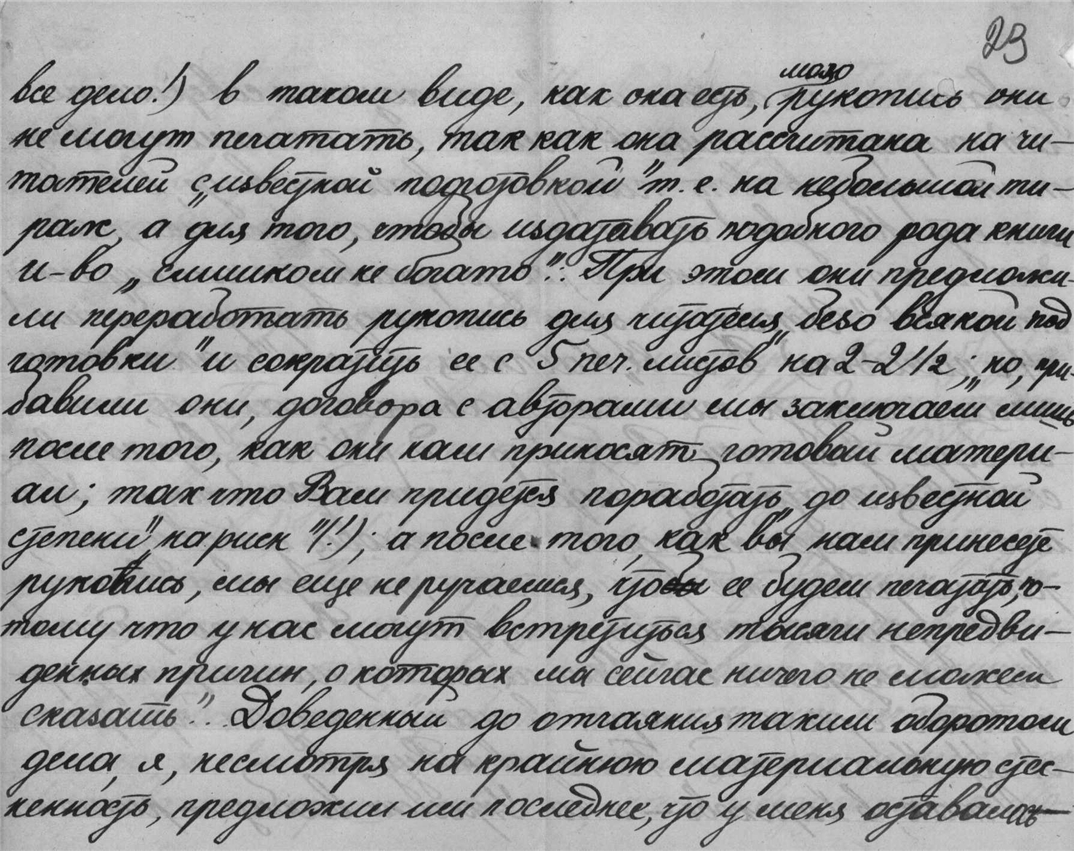 23
все дело!) в таком виде, как она есть, мою рукопись они
не могут печатать, так как она рассчитана на чи-
тателей „с известной подготовкой" т. е. на небольшой ти-
раж, а „для того, чтобы издавать подобного рода книги
и-во „слишком не богато". При этом они предложи-
ли переработать рукопись для читателя „безо всякой под
готовки" и сократить ее с 5 печ. листов на 2-2½; „но, при-
бавили они, договора с авторами мы заключаем лишь
после того, как они нам приносят готовый матери-
ал; так что Вам придется поработать до известной
степени „на риск"(!); а после того, как вы нам принесете
рукопись, мы еще не ручаемся, что ее будем печатать, по-
тому что у нас могут встретиться тысячи непредви-
денных причин, о которых мы сейчас ничего не можем
сказать". Доведенный до отчаяния таким оборотом
дела, я, несмотря на крайнюю материальную стес-
ненность, предложил им последнее, что у меня оставалось